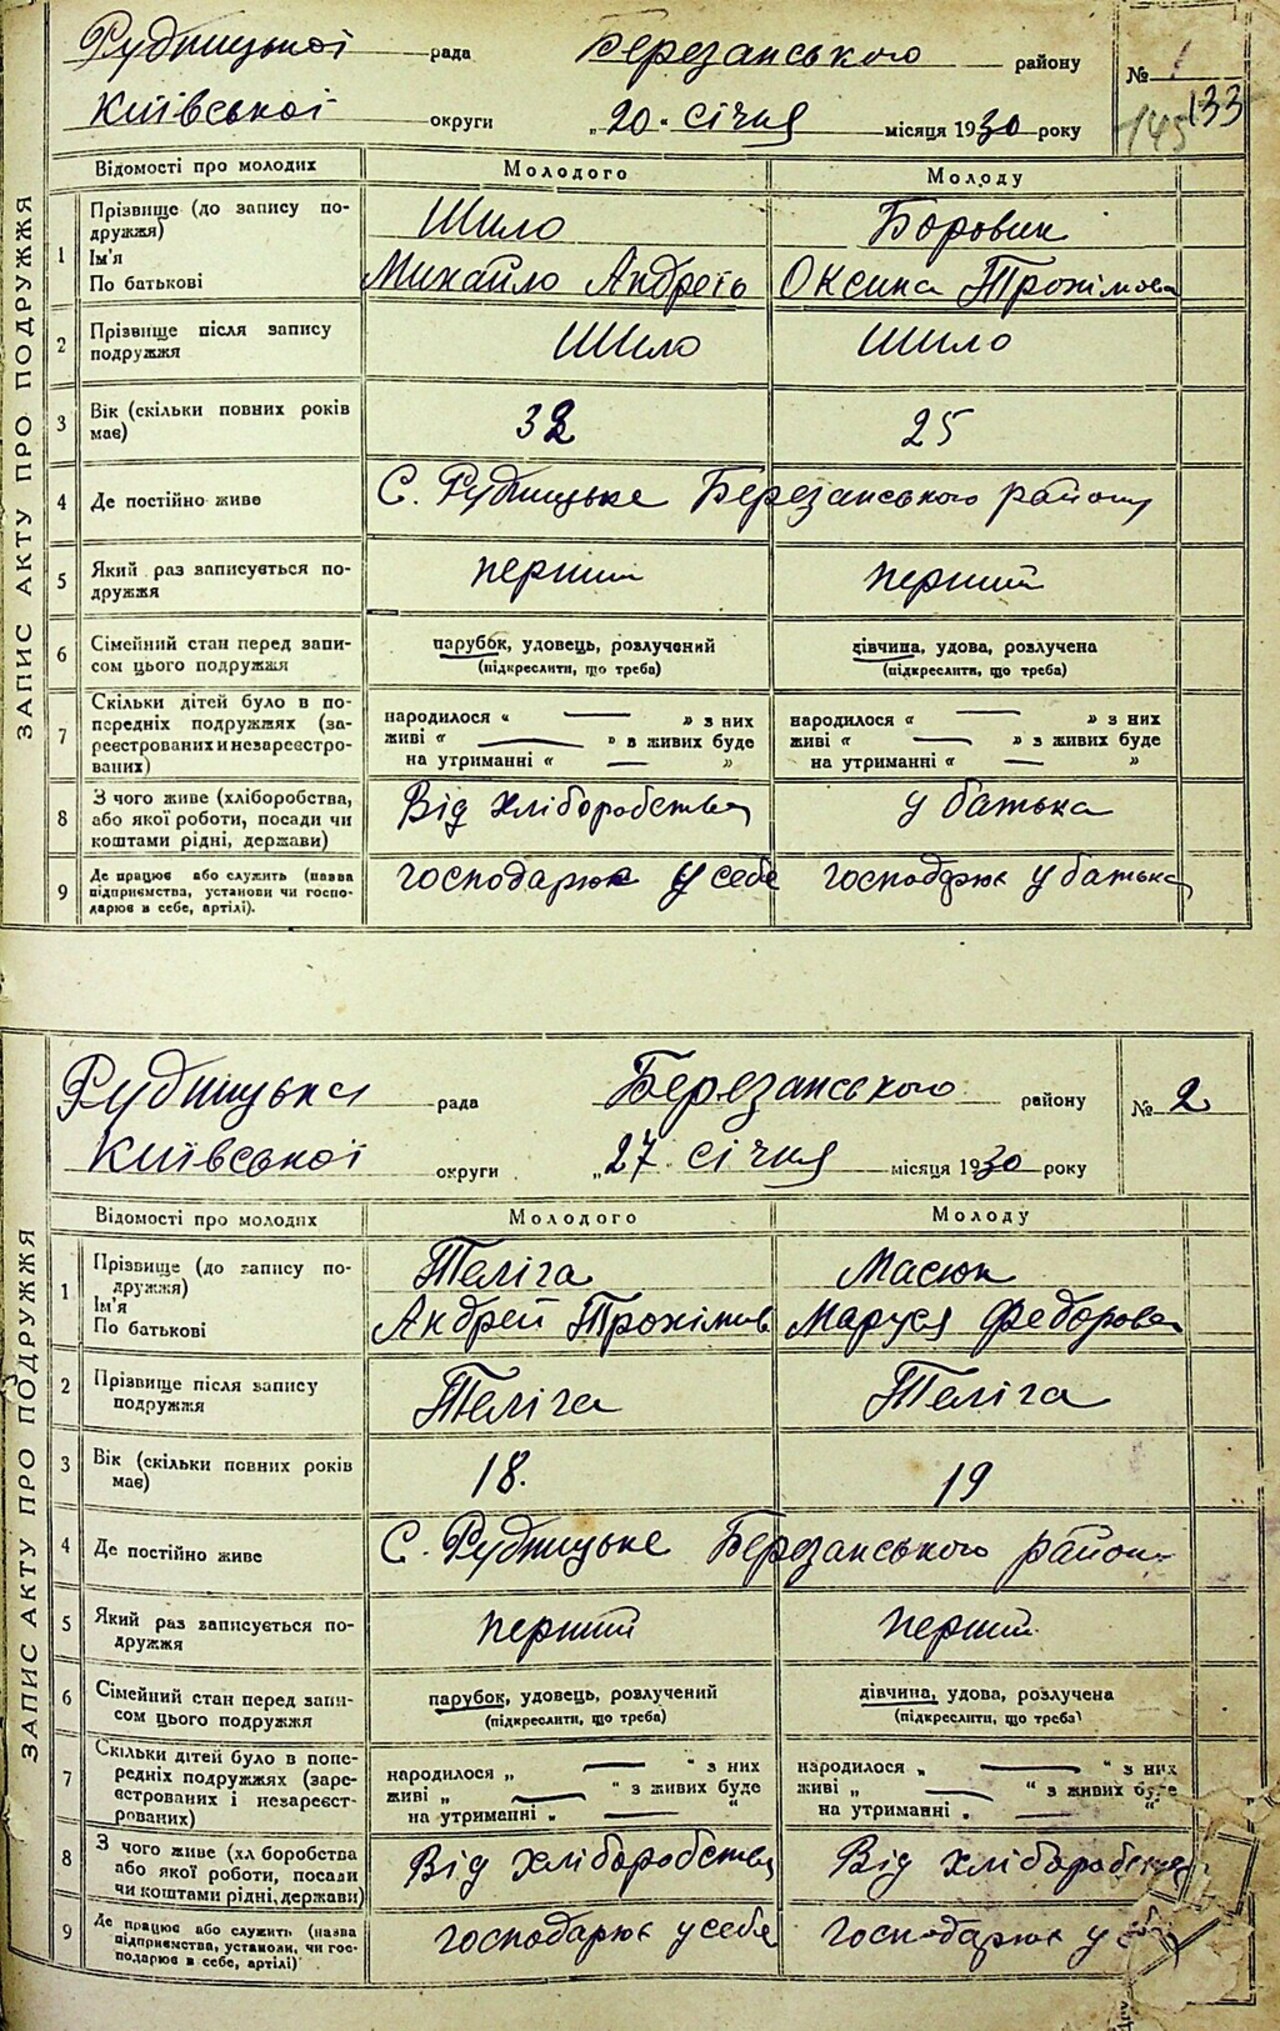 Рудницької рада Березанського району № 1
Київської округи „20“ січня місяця 1930 року 145 133
ЗАПИС АКТУ ПРО ПОДРУЖЖЯ
Відомості про молодих Молодого Молоду
1 Прізвище (до запису по-
дружжя) Шило Боровик
Ім'я
По батькові Михайло Андреїв Оксана Трохімова
2 Прізвище після запису
подружжя Шило Шило
3 Вік (скільки повних років
має) 32 25
4 Де постійно живе С. Рудницьке Березанського району
5 Який раз записується по-
дружжя перший перший
6 Сімейний стан перед запи-
сом цього подружжя
парубок, удовець, розлучений дівчина, удова, розлучена
(підкреслити, що треба) (підкреслити, що треба)
7 Скільки дітей було в по-
передніх подружжях (за-
реєстрованих и незареєстро-
ваних)
народилося « — » з них народилося « — » з них
живі « — » з живих буде живі « — » з живих буде
на утриманні « — » на утриманні « — »
8 З чого живе (хліборобства,
або якої роботи, посади чи
коштами рідні, держави) Від хліборобства у батька
9 Де працює або служить (назва
підприємства, установи чи госпо-
дарює в себе, артілі). господарює у себе господарює у батька
Рудницька рада Березанського району № 2
Київської округи „27 січня місяця 1930 року
ЗАПИС АКТУ ПРО ПОДРУЖЖЯ
Відомості про молодих Молодого Молоду
1 Прізвище (до запису по-
дружжя) Теліга Масюк
Ім'я
По батькові Андрей Трохімов Маруся Федорова
2 Прізвище після запису
подружжя Теліга Теліга
3 Вік (скільки повних років
має) 18. 19
4 Де постійно живе С. Рудницьке Березанського район
5 Який раз записується по-
дружжя перший перший
6 Сімейний стан перед запи-
сом цього подружжя
парубок, удовець, розлучений дівчина, удова, розлучена
(підкреслити, що треба) (підкреслити, що треба)
7 Скільки дітей було в попе-
редніх подружжях (заре-
єстрованих і незареєст-
рованих)
народилося „ — “ з них народилося „ — “ з них
живі „ — “ з живих буде живі „ — “ з живих буде
на утриманні „ — “ на утриманні „ — “
8 З чого живе (хл боробства
або якої роботи, посади
чи коштами рідні, держави) Від хліборобства Від хліборобства
9 Де працює або служить (назва
підприємства, установи, чи гос-
подарює в себе, артілі) господарює у себе господарює у